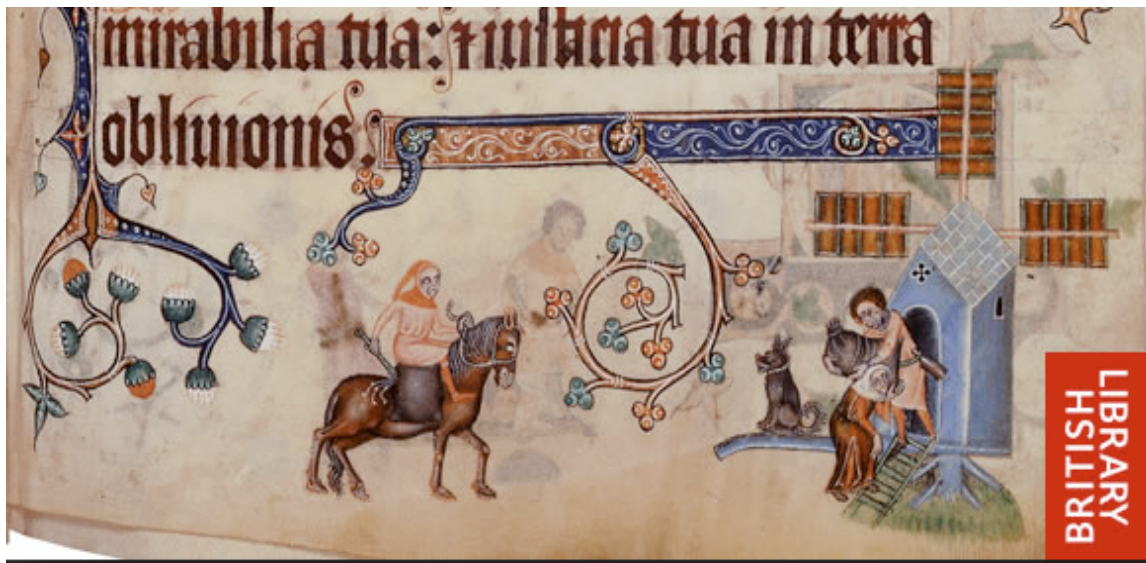 mirabilia tua: ⁊ iusticia tua in terra
obliuionis.
BRITISH
LIBRARY